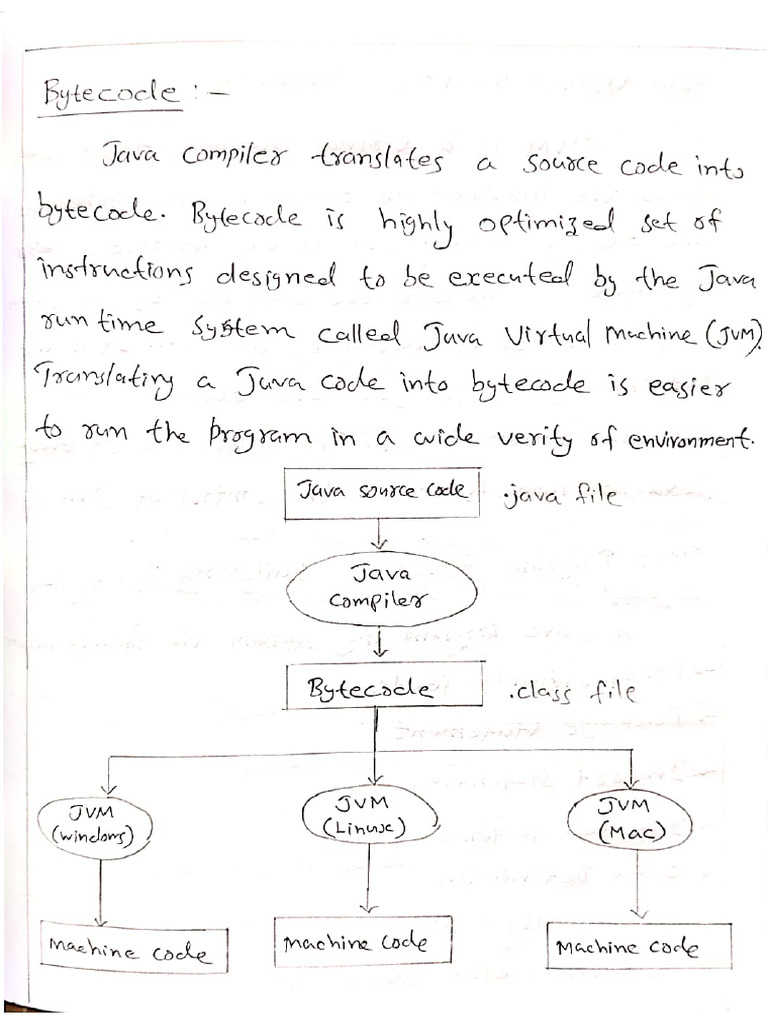 Bytecode :-
Java compiler translates a source code into
bytecode. Bytecode is highly optimized set of
instructions designed to be executed by the Java
run time system called Java Virtual Machine (JVM).
Translating a Java code into bytecode is easier
to run the program in a wide verity of environment.
Java source code .java file
Java
compiler
Bytecode .class file
JVM JVM JVM
(windows) (Linux) (Mac)
Machine code Machine code Machine code